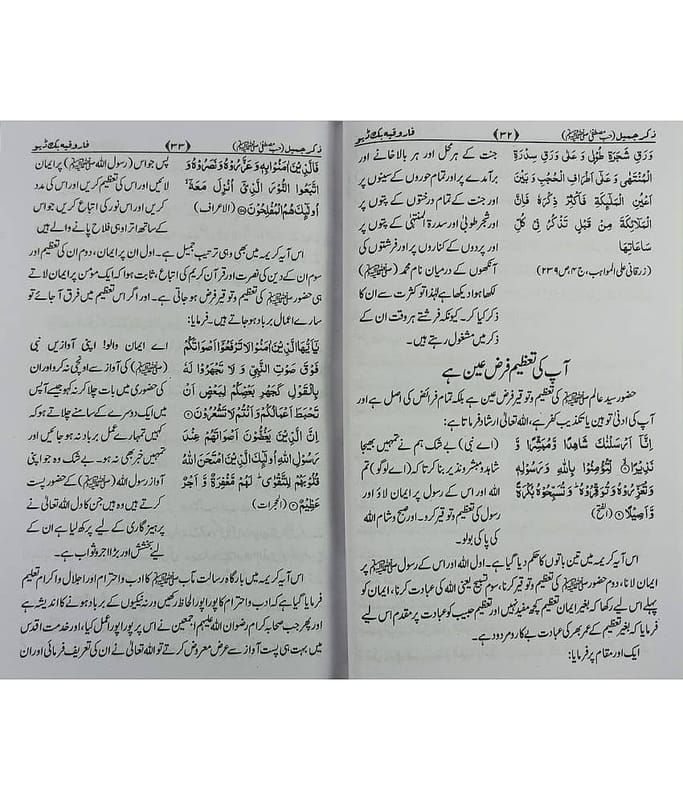 ذکر جمیل (حب مصطفٰی ﷺ) ﴿۳۲﴾ فاروقیہ بک ڈپو
وَرَقِ شَجَرَةِ طُوْبٰی وَ عَلٰی وَرَقِ سِدْرَةِ
الْمُنْتَهٰی وَ عَلٰی اَطْرَافِ الْحُجُبِ وَ بَيْنَ
اَعْيُنِ الْمَلٰٓئِكَةِ فَاَكْثِرْ ذِكْرَهٗ فَاِنَّ
الْمَلَائِكَةَ مِنْ قَبْلُ تَذْكُرُ فِیْ كُلِّ
سَاعَاتِهَا
(زرقانی علی المواہب، ج ۳ ص ۲۳۹)
جنت کے ہر محل اور ہر بالا خانے اور
برآمدے پر اور تمام حوروں کے سینوں پر
اور جنت کے تمام درختوں کے پتوں پر
اور شجر طوبیٰ اور سدرۃ المنتہیٰ کے پتوں پر
اور پردوں کے کناروں پر اور فرشتوں کی
آنکھوں کے درمیان نام محمد (ﷺ)
لکھا ہوا دیکھا ہے لہٰذا تو کثرت سے ان کا
ذکر کیا کر۔ کیونکہ فرشتے ہر وقت ان کے
ذکر میں مشغول رہتے ہیں۔
آپ کی تعظیم فرض عین ہے
حضور سید عالم ﷺ کی تعظیم و توقیر فرض عین ہے بلکہ تمام فرائض کی اصل ہے اور
آپ کی ادنیٰ توہین یا تکذیب کفر ہے، اللہ تعالیٰ ارشاد فرماتا ہے:
اِنَّاۤ اَرْسَلْنٰكَ شَاهِدًا وَّ مُبَشِّرًا وَّ
نَذِيْرًا لِّتُؤْمِنُوْا بِاللّٰهِ وَ رَسُوْلِهٖ
وَ تُعَزِّرُوْهُ وَ تُوَقِّرُوْهُ وَ تُسَبِّحُوْهُ بُكْرَةً
وَّ اَصِيْلًا (الفتح)
(اے نبی) بے شک ہم نے تمہیں بھیجا
شاہد و مبشر و نذیر بنا کر تا کہ (اے لوگو) تم
اللہ اور اس کے رسول پر ایمان لاؤ اور
رسول کی تعظیم و توقیر کرو۔ اور صبح و شام اللہ
کی پاکی بولو۔
اس آیہ کریمہ میں تین باتوں کا حکم دیا گیا ہے۔ اول اللہ اور اس کے رسول ﷺ پر
ایمان لانا، دوم حضور ﷺ کی تعظیم و توقیر کرنا، سوم تسبیح یعنی اللہ کی عبادت کرنا، ایمان کو
پہلے اس لیے رکھا کہ بغیر ایمان تعظیم کچھ مفید نہیں اور تعظیم حبیب کو عبادت پر مقدم اس لیے
فرمایا کہ بغیر تعظیم کے عمر بھر کی عبادت بے کار و مردود ہے۔
ایک اور مقام پر فرمایا:
ذکر جمیل (حب مصطفٰی ﷺ) ﴿۳۳﴾ فاروقیہ بک ڈپو
فَالَّذِيْنَ اٰمَنُوْا بِهٖ وَ عَزَّرُوْهُ وَ نَصَرُوْهُ وَ
اتَّبَعُوا النُّوْرَ الَّذِیْۤ اُنْزِلَ مَعَهٗۤ
اُولٰٓئِكَ هُمُ الْمُفْلِحُوْنَ (الاعراف)
پس جو اس (رسول اللہ ﷺ) پر ایمان
لائیں اور اس کی تعظیم کریں اور اس کی مدد
کریں اور اس نور کی اتباع کریں جو اس
کے ساتھ اترا وہی فلاح پانے والے ہیں
اس آیہ کریمہ میں بھی وہی ترتیب جمیل ہے۔ اول ان پر ایمان، دوم ان کی تعظیم اور
سوم ان کے دین کی نصرت اور قرآن کریم کی اتباع، ثابت ہوا کہ ایک مؤمن پر ایمان لاتے
ہی حضور ﷺ کی تعظیم و توقیر فرض ہو جاتی ہے۔ اور اگر اس تعظیم میں فرق آجائے تو
سارے اعمال برباد ہو جاتے ہیں۔ فرمایا:
يٰۤاَيُّهَا الَّذِيْنَ اٰمَنُوْا لَا تَرْفَعُوْۤا اَصْوَاتَكُمْ
فَوْقَ صَوْتِ النَّبِیِّ وَ لَا تَجْهَرُوْا لَهٗ
بِالْقَوْلِ كَجَهْرِ بَعْضِكُمْ لِبَعْضٍ اَنْ
تَحْبَطَ اَعْمَالُكُمْ وَ اَنْتُمْ لَا تَشْعُرُوْنَ
اِنَّ الَّذِيْنَ يَغُضُّوْنَ اَصْوَاتَهُمْ عِنْدَ
رَسُوْلِ اللّٰهِ اُولٰٓئِكَ الَّذِيْنَ امْتَحَنَ اللّٰهُ
قُلُوْبَهُمْ لِلتَّقْوٰی لَهُمْ مَّغْفِرَةٌ وَّ اَجْرٌ
عَظِيْمٌ (الحجرات)
اے ایمان والو! اپنی آوازیں نبی
(ﷺ) کی آواز سے اونچی نہ کرو اور ان
کی حضوری میں بات چلا کر نہ کہو جیسے آپس
میں ایک دوسرے کے سامنے چلاتے ہو کہ
کہیں تمہارے عمل برباد نہ ہو جائیں اور
تمہیں خبر بھی نہ ہو۔ بے شک وہ جو اپنی
آواز رسول اللہ (ﷺ) کے حضور پست
کرتے ہیں وہ ہیں جن کا دل اللہ تعالیٰ نے
پرہیز گاری کے لیے پرکھ لیا ہے ان کے
لیے بخشش اور بڑا اجر و ثواب ہے۔
اس آیہ کریمہ میں بارگاہ رسالت مآب ﷺ کا ادب و احترام اور اجلال و اکرام تعلیم
فرمایا گیا ہے کہ ادب و احترام کا پورا پورا لحاظ رکھیں ورنہ نیکیوں کے برباد ہونے کا اندیشہ ہے
اور پھر جب صحابہ کرام رضوان اللہ علیہم اجمعین نے اس پر پورا پورا عمل کیا، اور خدمت اقدس
میں بہت ہی پست آواز سے عرض معروض کرتے تو اللہ تعالیٰ نے ان کی تعریف فرمائی اور ان